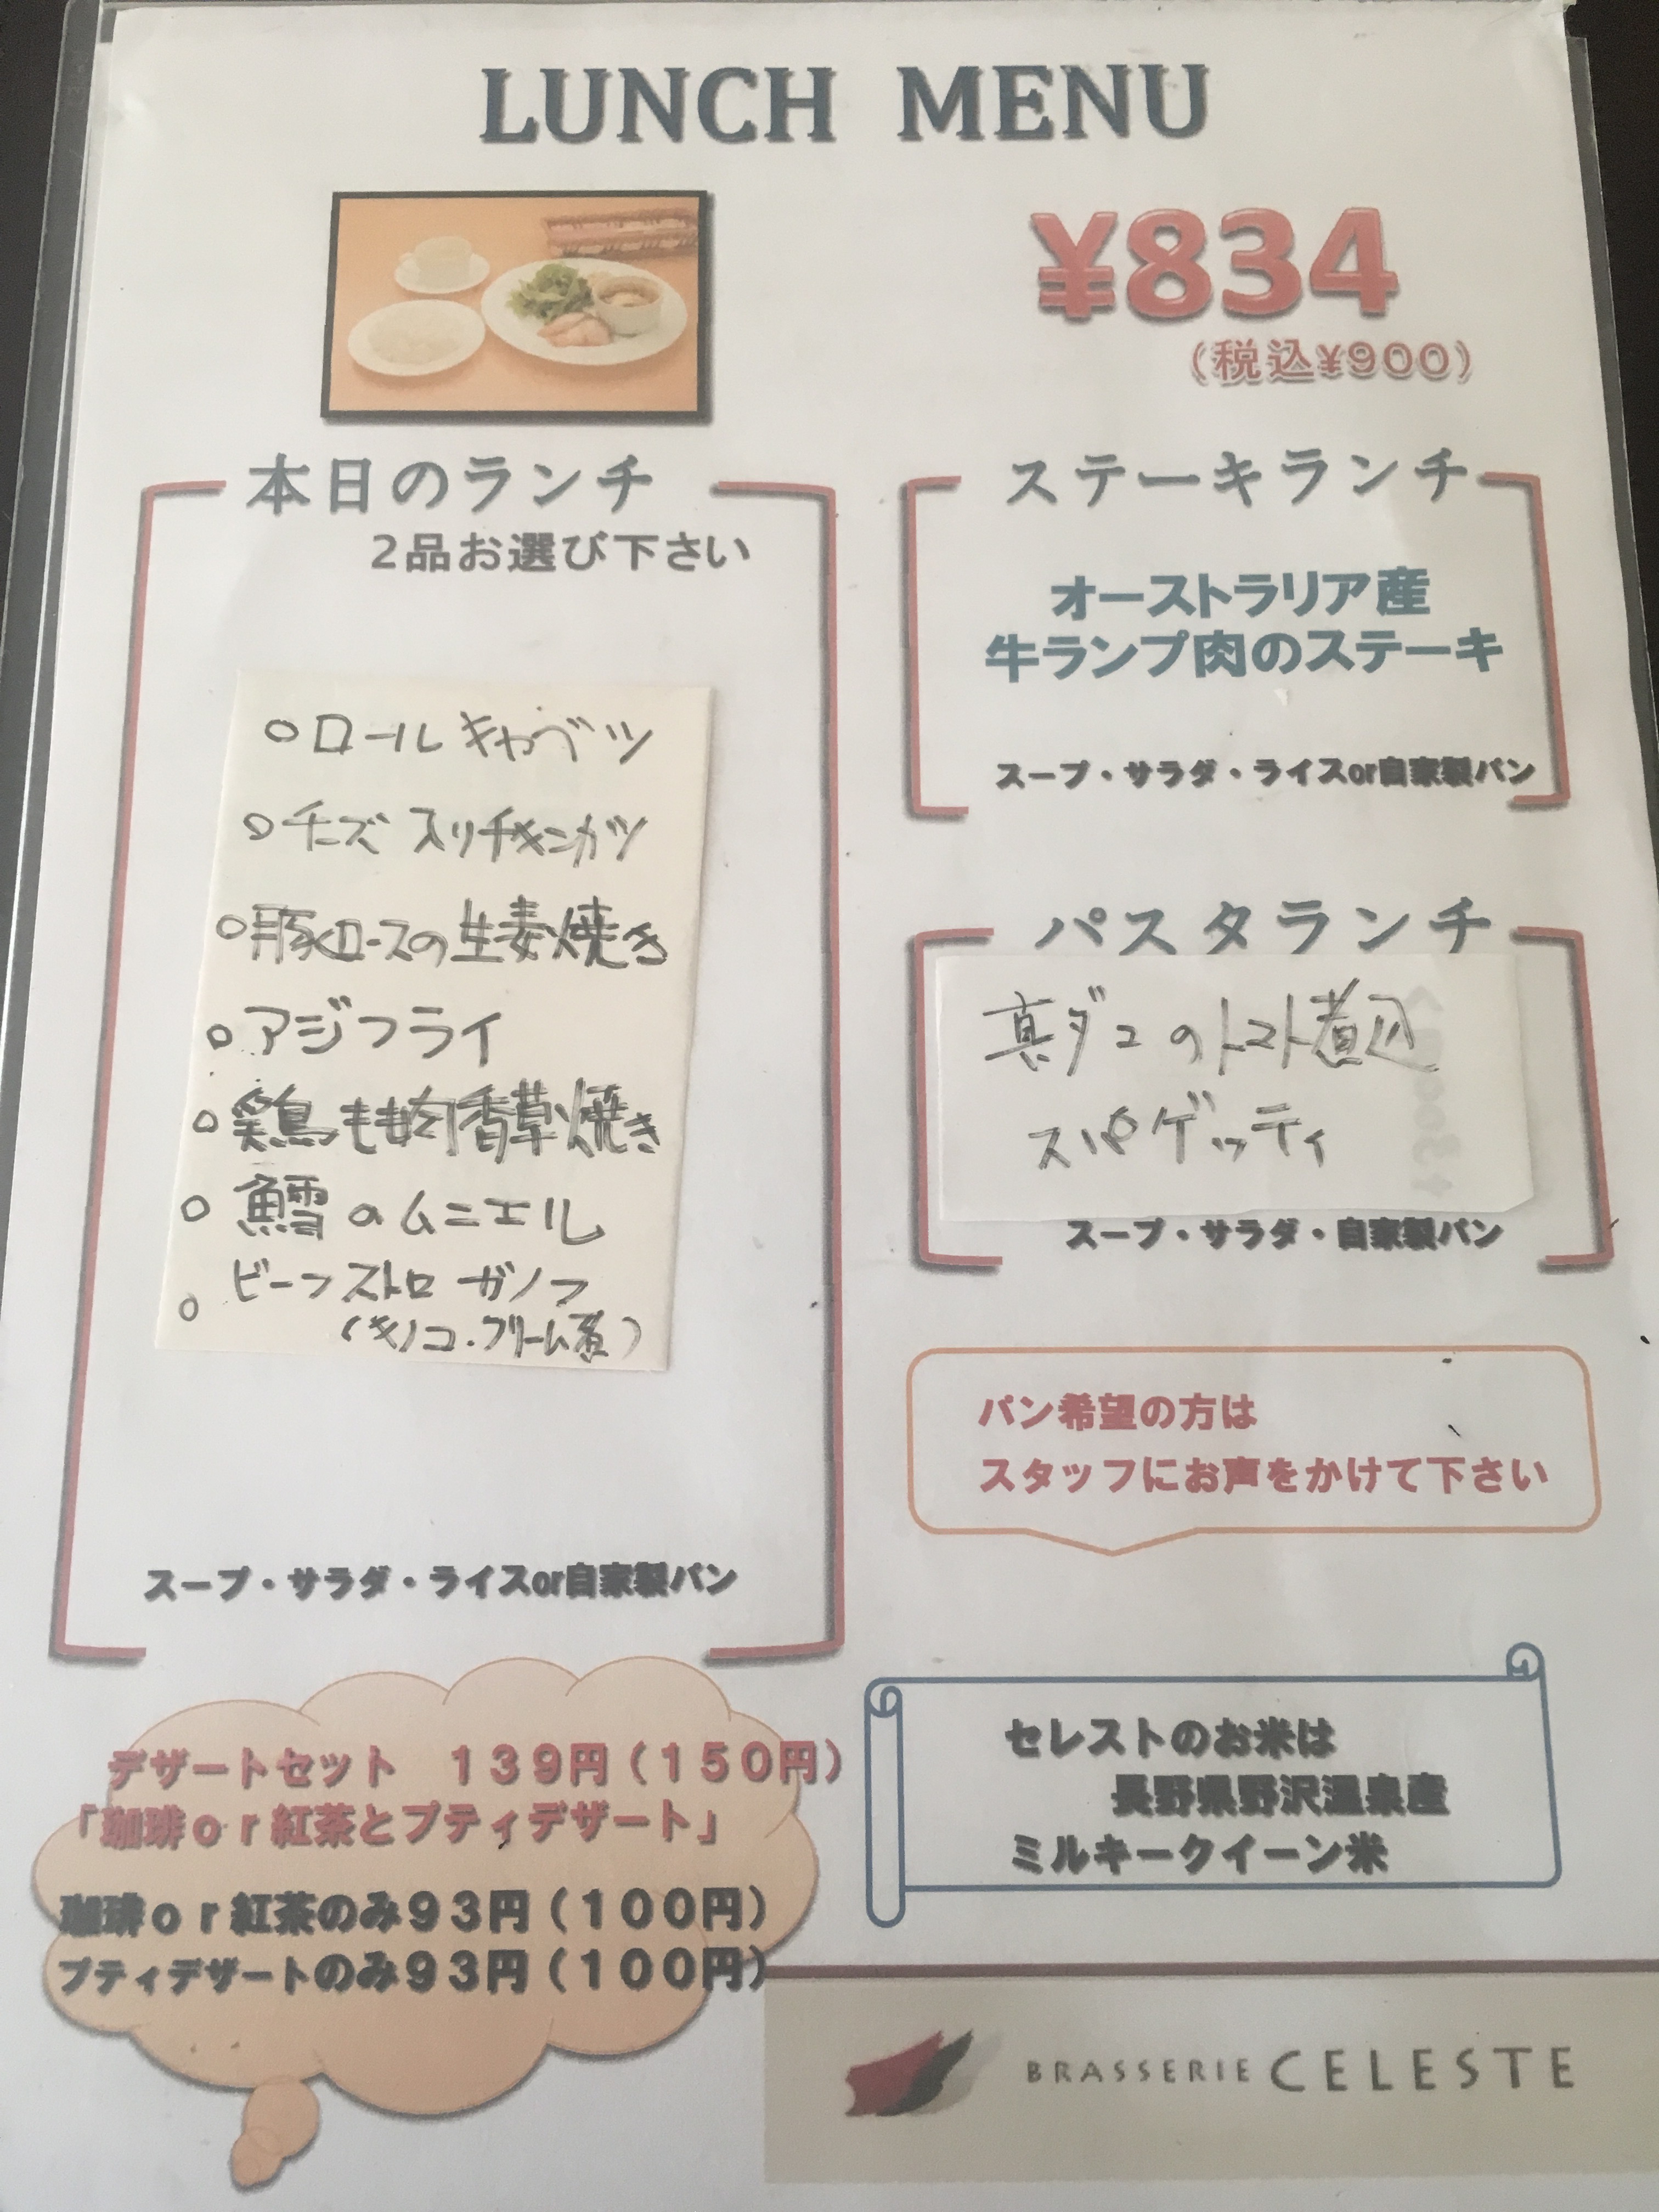 LUNCH MENU
¥834
(税込¥900)
本日のランチ
2品お選び下さい
○ロールキャベツ
○チーズ入りチキンカツ
○豚ロースの生姜焼き
○アジフライ
○鶏もも肉香草焼き
○鱈のムニエル
○ビーフストロガノフ
(キノコ・クリーム煮)
スープ・サラダ・ライスor自家製パン
ステーキランチ
オーストラリア産
牛ランプ肉のステーキ
スープ・サラダ・ライスor自家製パン
パスタランチ
真ダコのトマト煮込
スパゲッティ
スープ・サラダ・自家製パン
パン希望の方は
スタッフにお声をかけて下さい
デザートセット 139円(150円)
「珈琲or紅茶とプティデザート」
珈琲or紅茶のみ93円(100円)
プティデザートのみ93円(100円)
セレストのお米は
長野県野沢温泉産
ミルキークイーン米
BRASSERIE CELESTE